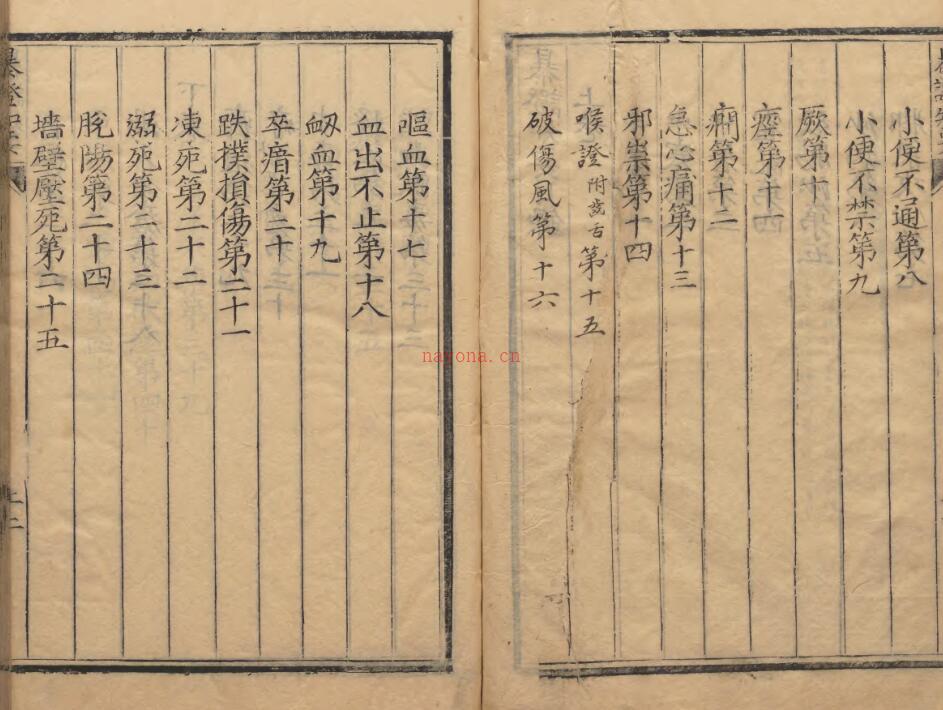 小便不通第八
小便不禁第九
厥第十
痙第十四
癇第十二
急心痛第十三
邪祟第十四
喉證附歲舌第十五
破傷風第十六
嘔血第十七
血出不止第十八
衂血第十九
卒瘖第二十
跌撲損傷第二十一
凍死第二十二
溺死第二十三
脫陽第二十四
墻壁壓死第二十五
上二
nayona.cn